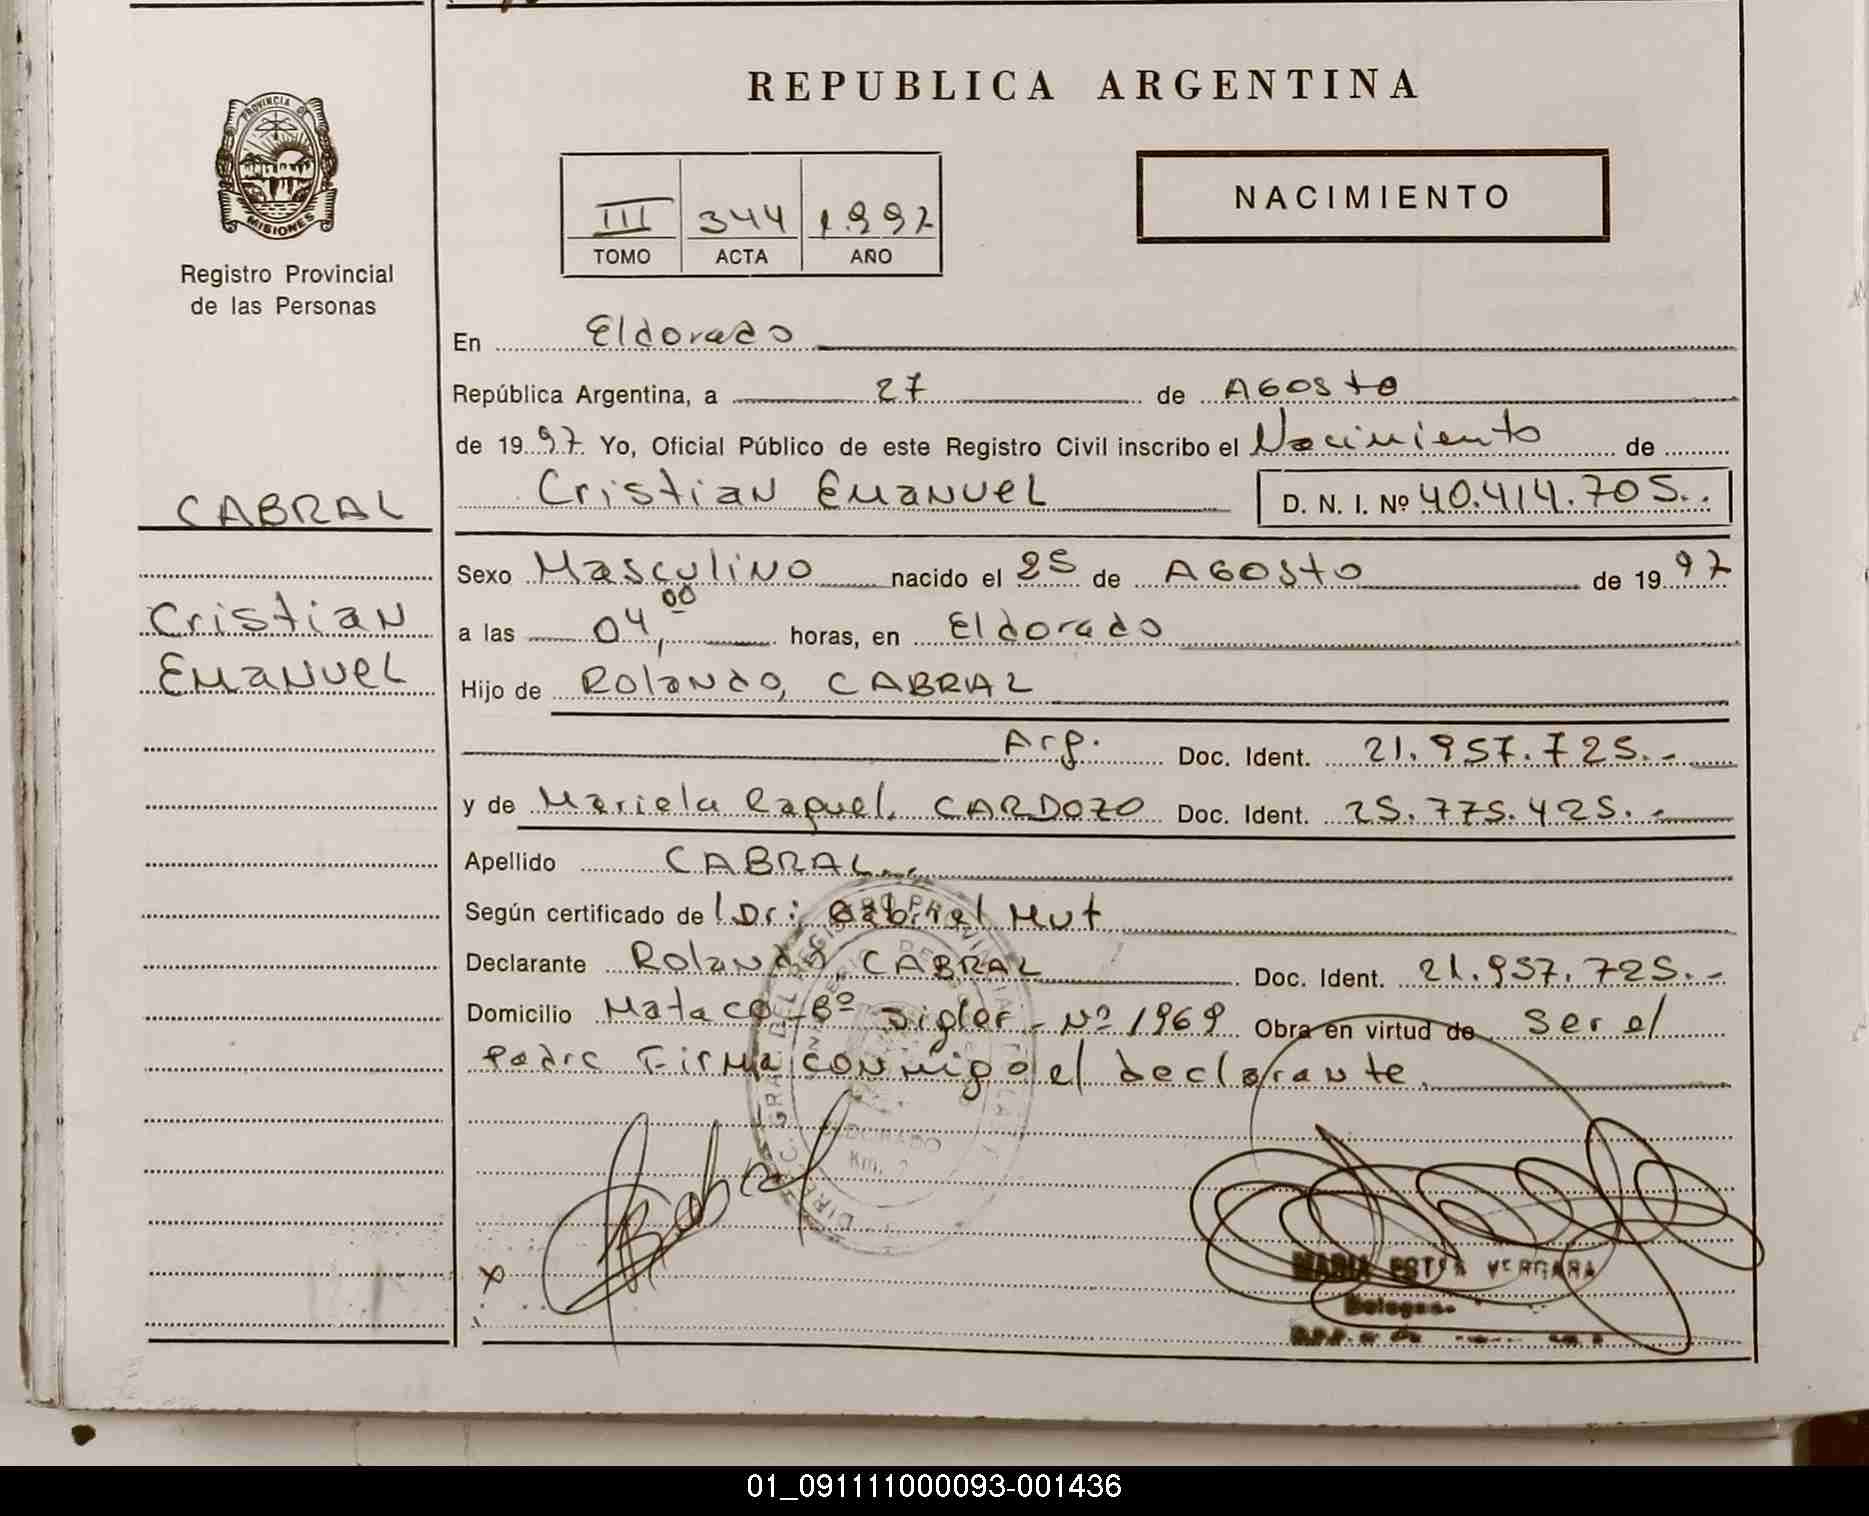 REPUBLICA ARGENTINA
PROVINCIA DE
MISIONES
Registro Provincial
de las Personas
III 344 1.997
TOMO ACTA AÑO
NACIMIENTO
CABRAL
Cristian
Emanuel
En Eldorado
República Argentina, a 27 de Agosto
de 1997 Yo, Oficial Público de este Registro Civil inscribo el Nacimiento de
Cristian Emanuel D. N. I. Nº 40.414.705..
Sexo Masculino nacido el 25 de Agosto de 1997
a las 04,00 horas, en Eldorado
Hijo de Rolando, CABRAL
Arg. Doc. Ident. 21.957.725.-
y de Mariela Raquel, CARDOZO Doc. Ident. 25.775.425.-
Apellido CABRAL.
Según certificado de Dr: Gabriel Mut
Declarante Rolando, CABRAL Doc. Ident. 21.957.725.-
Domicilio Mataco - Bº - Nº 1969 Obra en virtud de Ser el
Padre Firma conmigo el declarante.
ELDORADO
Km.
Cabral
x
MARIA ESTER VERGARA
01_091111000093-001436